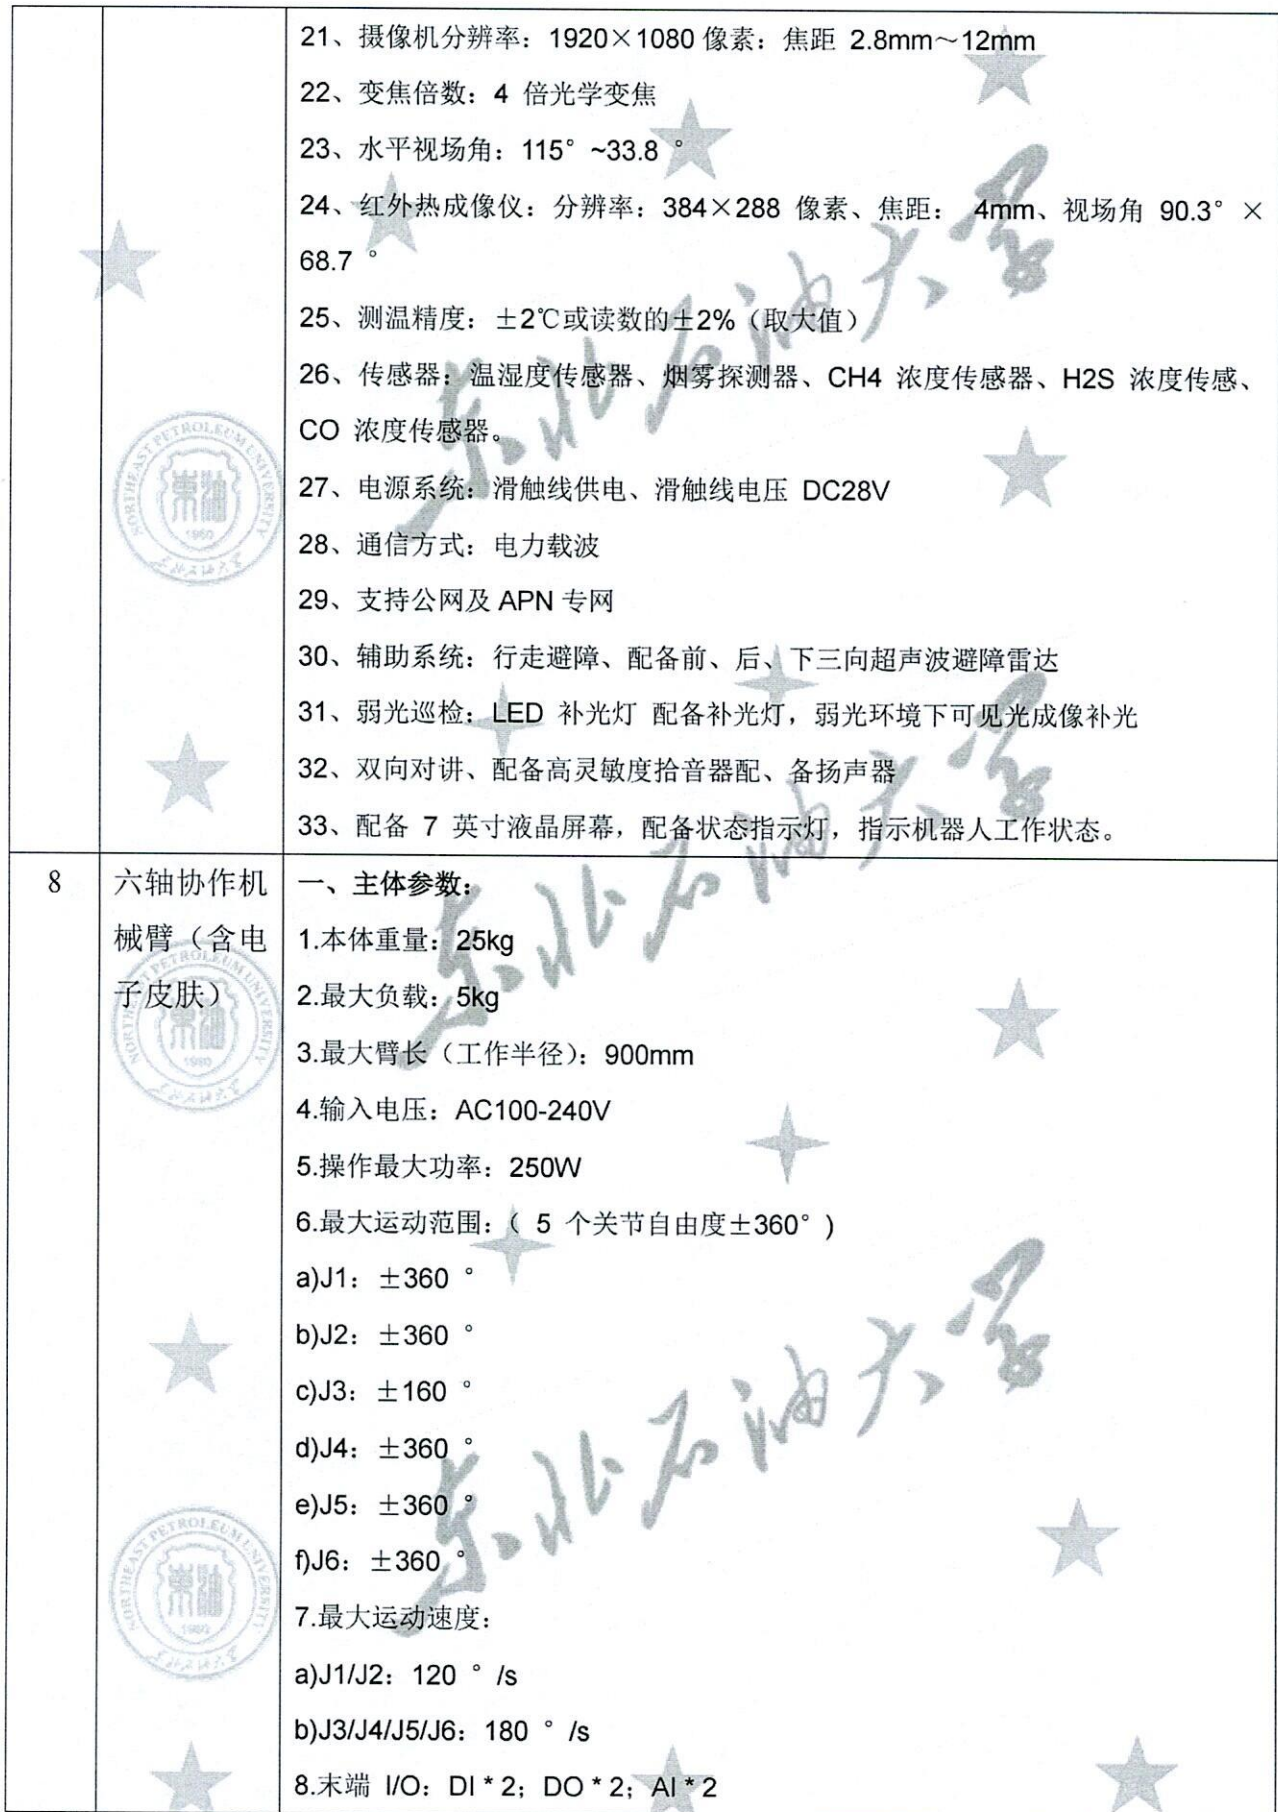 21、摄像机分辨率：1920×1080 像素：焦距 2.8mm～12mm
22、变焦倍数：4 倍光学变焦
23、水平视场角：115° ~33.8 °
24、红外热成像仪：分辨率：384×288 像素、焦距： 4mm、视场角 90.3° ×
68.7 °
25、测温精度：±2℃或读数的±2%（取大值）
26、传感器：温湿度传感器、烟雾探测器、CH4 浓度传感器、H2S 浓度传感、
CO 浓度传感器。
27、电源系统：滑触线供电、滑触线电压 DC28V
28、通信方式：电力载波
29、支持公网及 APN 专网
30、辅助系统：行走避障、配备前、后、下三向超声波避障雷达
31、弱光巡检：LED 补光灯 配备补光灯，弱光环境下可见光成像补光
32、双向对讲、配备高灵敏度拾音器配、备扬声器
33、配备 7 英寸液晶屏幕，配备状态指示灯，指示机器人工作状态。
8
六轴协作机
械臂（含电
子皮肤）
一、主体参数：
1.本体重量：25kg
2.最大负载：5kg
3.最大臂长（工作半径）：900mm
4.输入电压：AC100-240V
5.操作最大功率：250W
6.最大运动范围：（ 5 个关节自由度±360° )
a)J1：±360 °
b)J2：±360 °
c)J3：±160 °
d)J4：±360 °
e)J5：±360 °
f)J6：±360 °
7.最大运动速度：
a)J1/J2：120 ° /s
b)J3/J4/J5/J6：180 ° /s
8.末端 I/O：DI * 2；DO * 2；AI * 2
东北石油大学
东北石油大学
东北石油大学
NORTHEAST PETROLEUM UNIVERSITY
1960
NORTHEAST PETROLEUM UNIVERSITY
1960
NORTHEAST PETROLEUM UNIVERSITY
1960